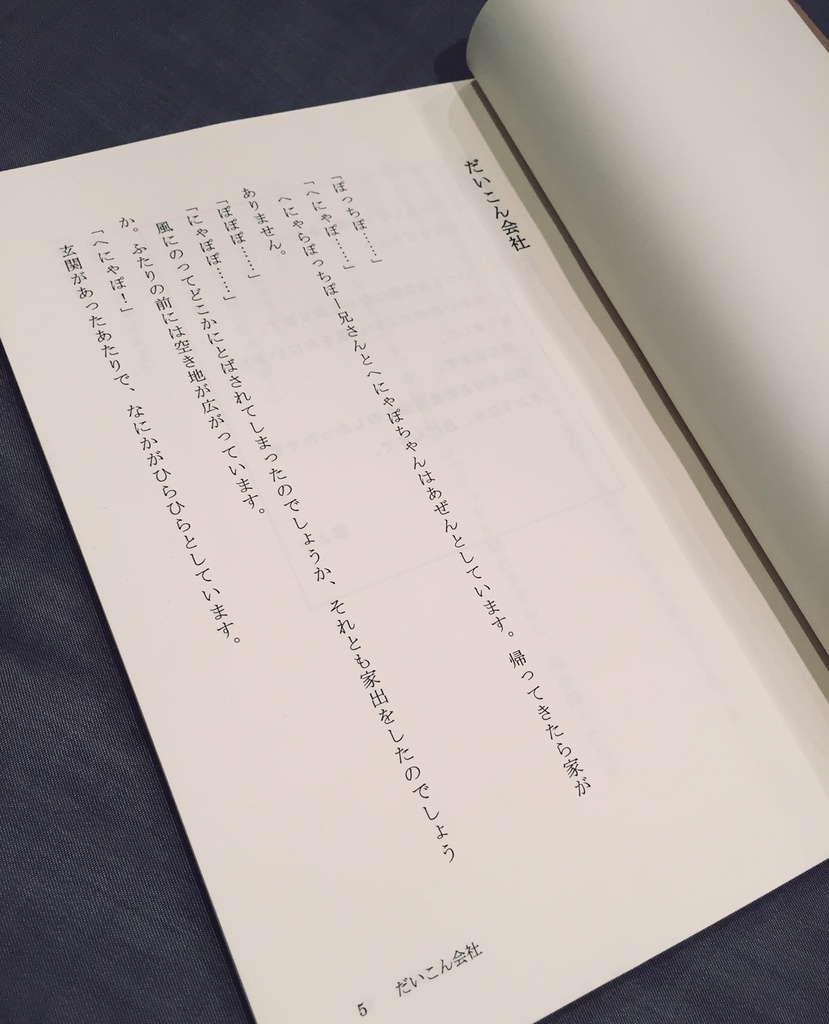 だいこん会社
「ぽっちぽ……」
「へにゃぽ……」
へにゃらぽっちぽー兄さんとへにゃぽちゃんはあぜんとしています。帰ってきたら家が
ありません。
「ぽぽぽ……」
「にゃぽぽ……」
風にのってどこかにとばされてしまったのでしょうか、それとも家出をしたのでしょう
か。ふたりの前には空き地が広がっています。
「へにゃぽ！」
玄関があったあたりで、なにかがひらひらとしています。
5 だいこん会社